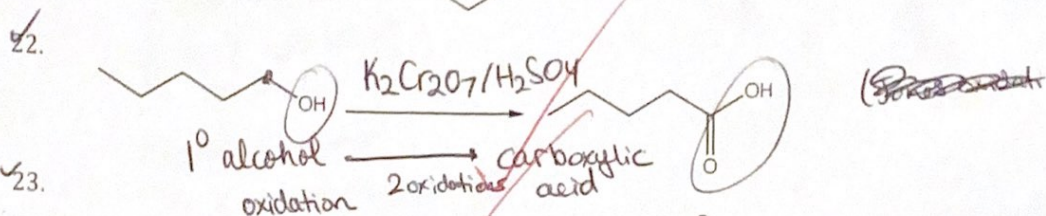 22.
OH
K2Cr2O7/H2SO4
OH
O
1° alcohol
carboxylic
acid
2 oxidations
23.
oxidation